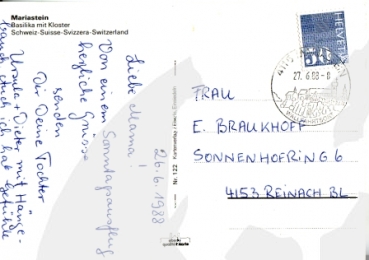 Mariastein
Basilika mit Kloster
Schweiz-Suisse-Svizzera-Switzerland
26.6.1988
Liebe Mama!
Von einem Sonntagsausflug
herzliche Grüsse
senden
Dir Deine Tochter
Ursula + Dieter mit Häns-
Nr. 122
HELVETIA
27.6.88-8
FRAU
E. BRAUKHOFF
SONNENHOFRING 6
4153 REINACH BL